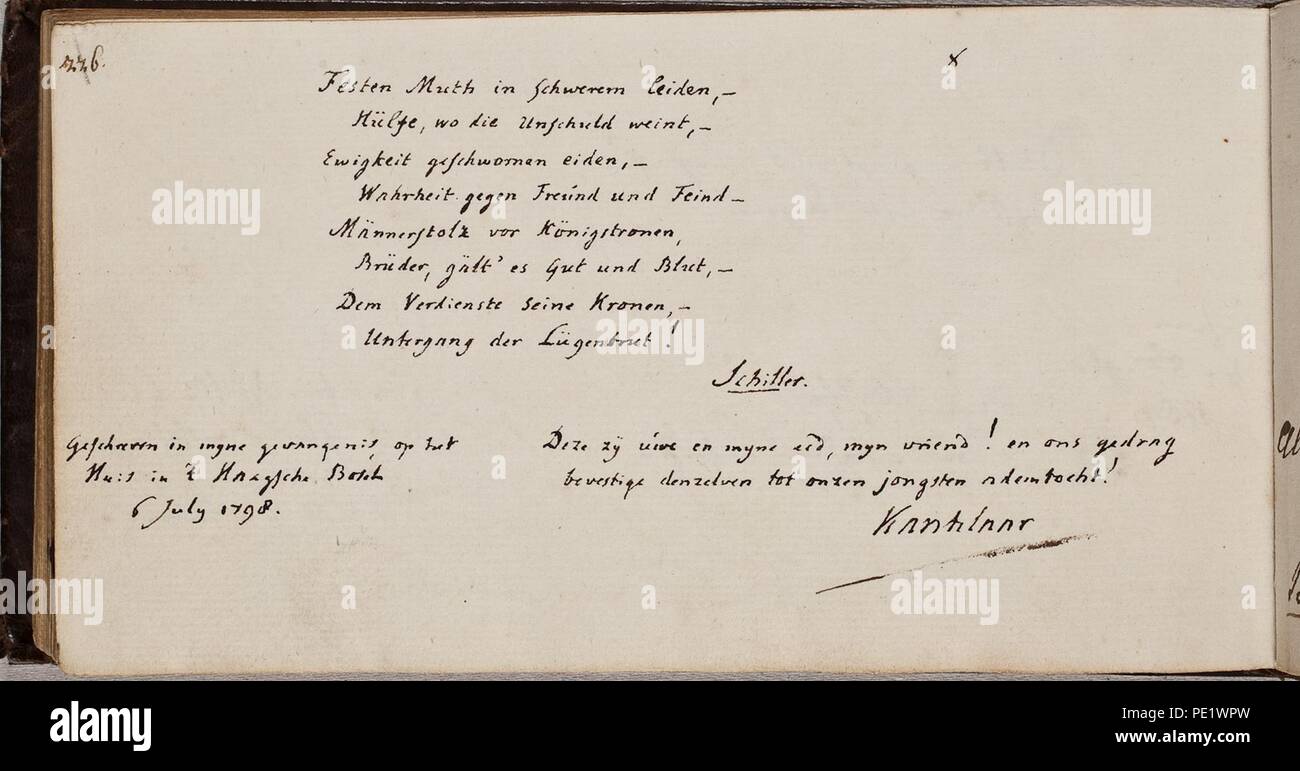 226.
x
Festen Muth in schwerem leiden,—
Hülfe, wo die Unschuld weint,—
Ewigkeit geschwornen eiden,—
Wahrheit gegen Freund und Feind—
Männerstolz vor Königstronen,
Brüder, gält' es Gut und Blut,—
Dem Verdienste seine Kronen,—
Untergang der Lügenbrut!
Schiller.
Geschreven in myne gevangenis, op het
Huis in 't Haagsche Bosch
6 July 1798.
Deze zÿ uwe en myne eed, myn vriend! en ons gedrag
bevestige denzelven tot onzen jongsten ademtocht!
Kantelaar
a alamy
alamy
Image ID: PE1WPW
www.alamy.com